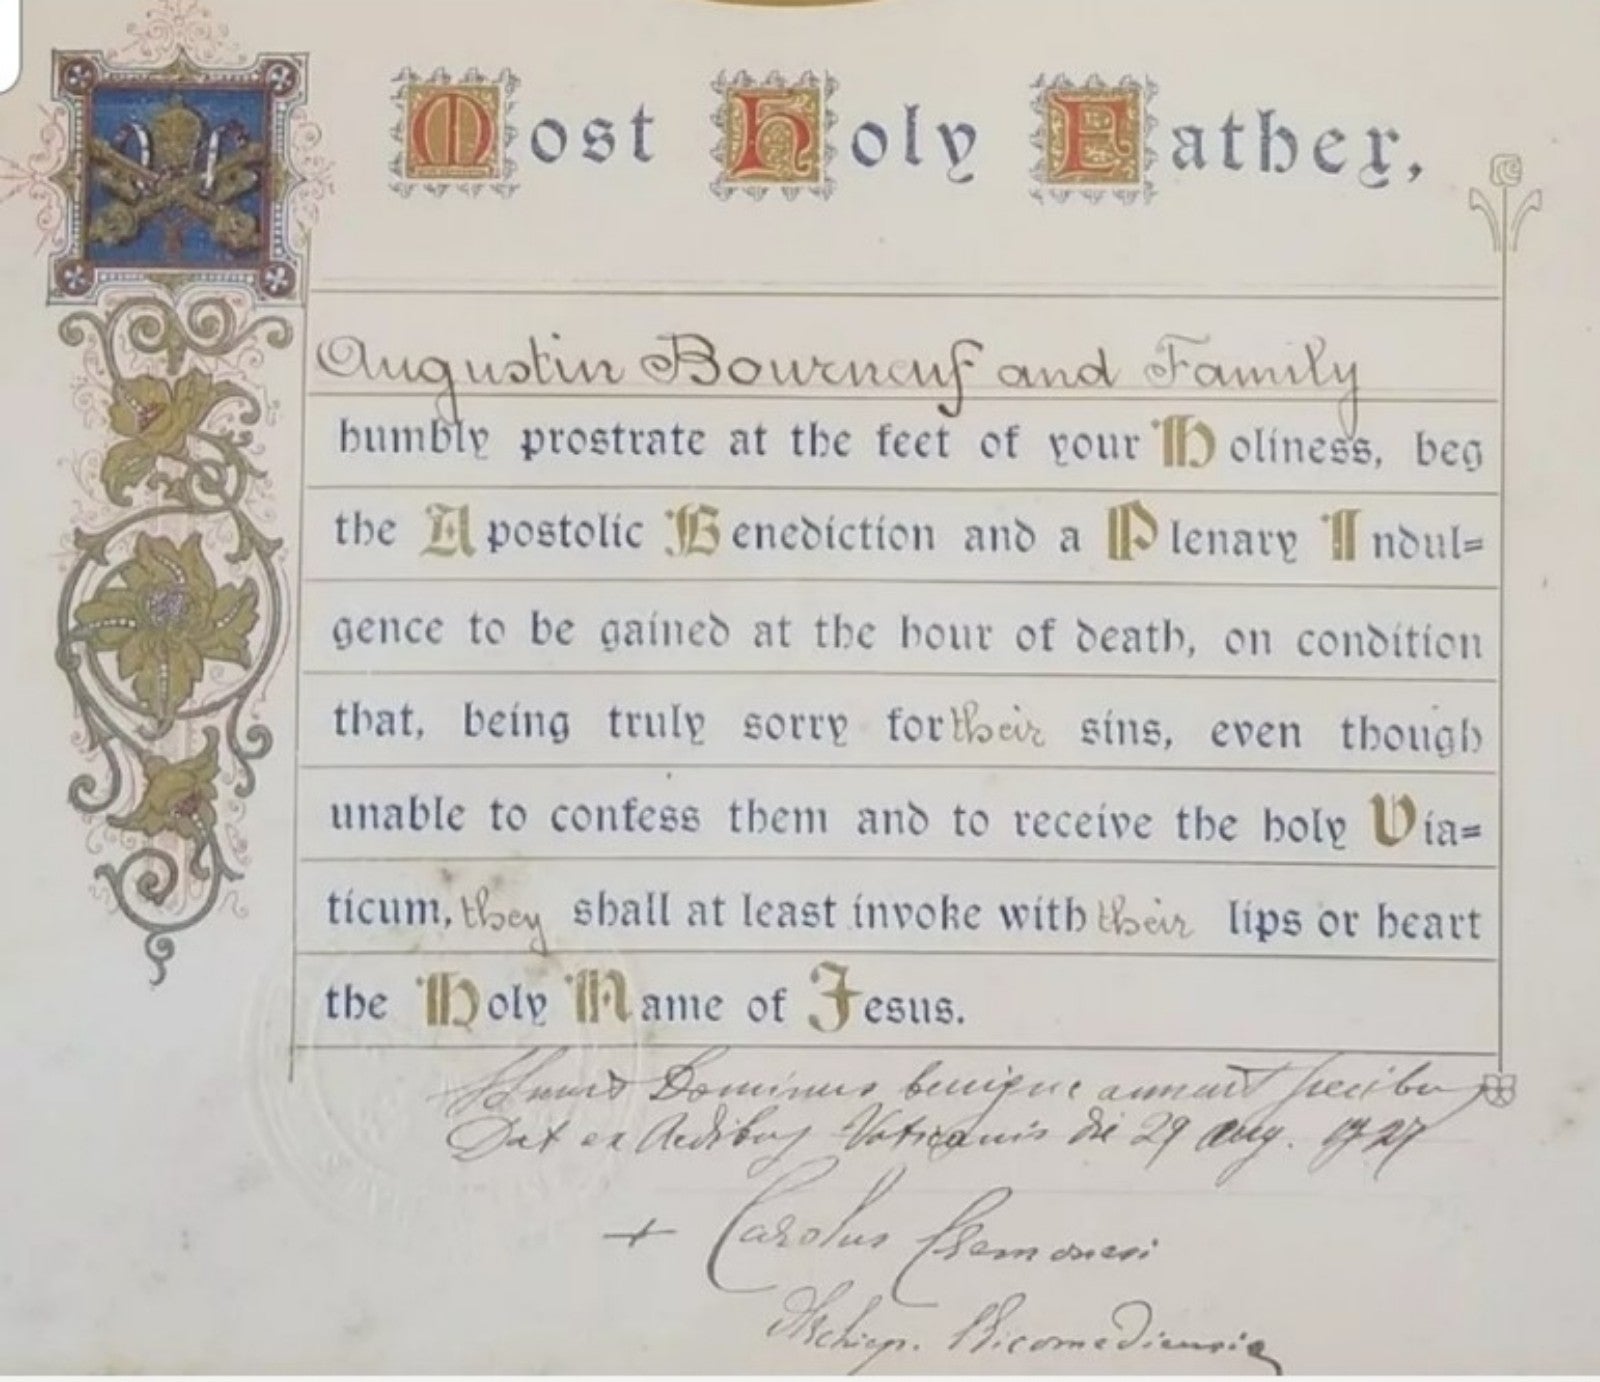 Most Holy Father,
Augustin Bourneuf and Family
humbly prostrate at the feet of your Holiness, beg
the Apostolic Benediction and a Plenary Indul=
gence to be gained at the hour of death, on condition
that, being truly sorry for their sins, even though
unable to confess them and to receive the holy Via=
ticum, they shall at least invoke with their lips or heart
the Holy Name of Jesus.
Dominus benigne annuit precibus
Dat ex Aedibus Vaticanis die 29 Aug. 1927
+ Carolus Cremonesi
Archiep. Nicomediensis